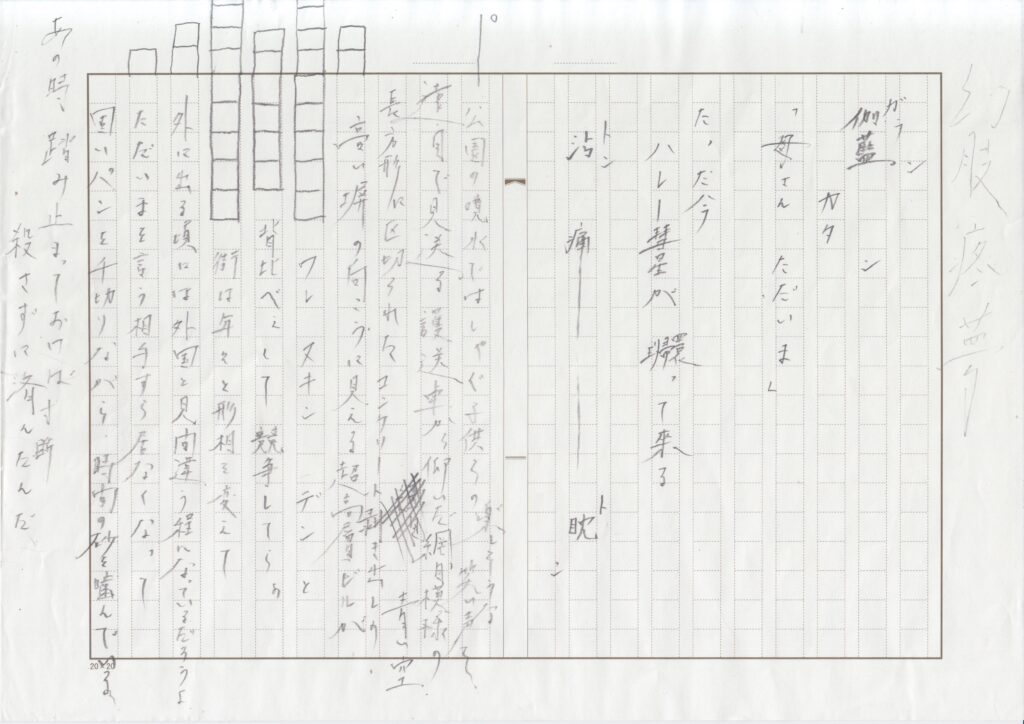 幻肢疼
ガラン
伽藍。
ン
カタ
「母さん ただいま」
た、だ今
ハレー彗星が 環って来る
トン
沾 痛―――― 眈
ト
ン
公園の噴水ではしゃぐ子供らの 楽しそうな 笑い声すら
遠目で見送る 護送車から仰いだ 網目模様の
長方形に区切られた コンクリート 青い空
高い塀の向こうに見える超高層ビルが
ワレ ヌキン デンと
背比べぇして 競争してらぁ
街は年々と形相を変えて
外に出る頃には外国と見間違う程になっているだろうよ
ただいまを言う相手すら居なくなって
固いパンを千切りながら、時間の砂を噛んでいる。
あの時、踏み止まっておけば寸断
殺さずに済んだんだ
20×20